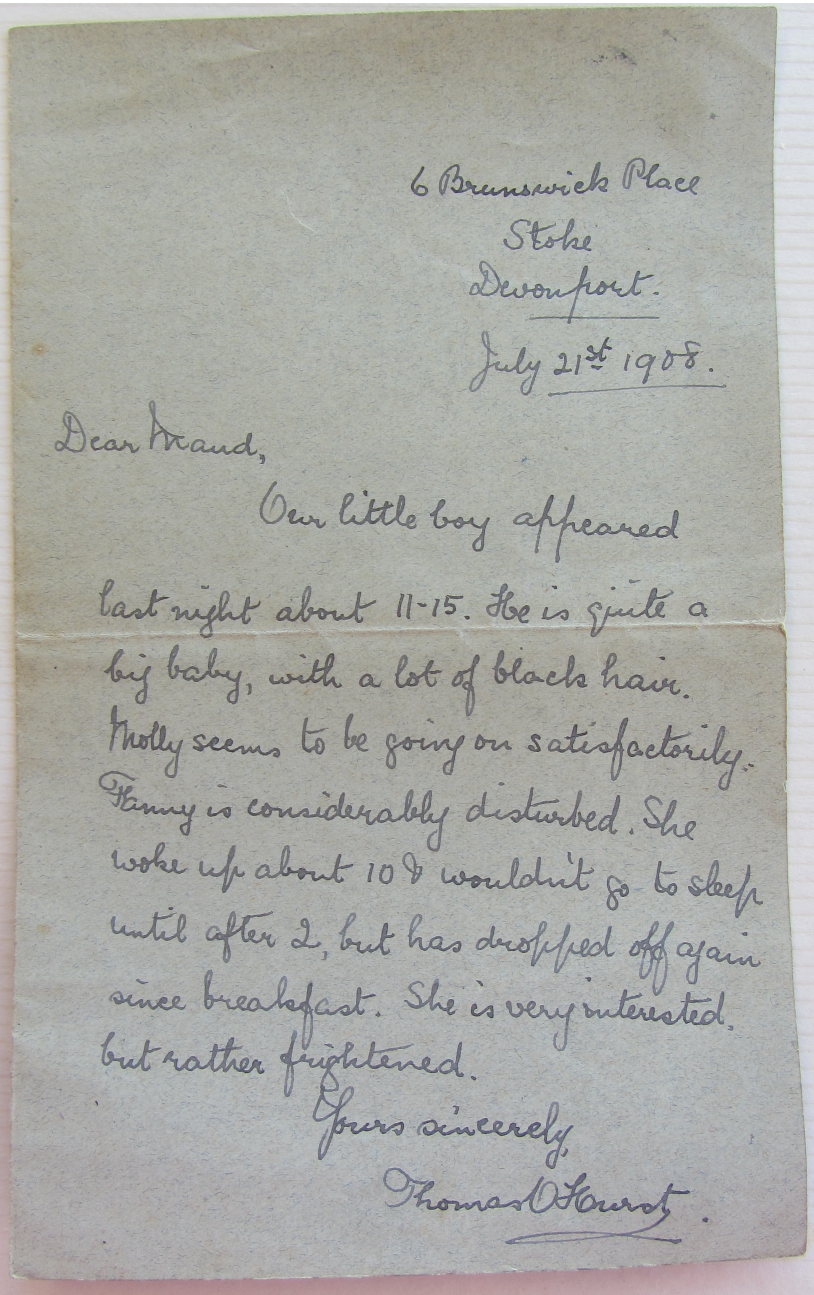 6 Brunswick Place
Stoke
Devonport.
July 21st 1908.
Dear Maud,
Our little boy appeared
last night about 11-15. He is quite a
big baby, with a lot of black hair.
Molly seems to be going on satisfactorily.
Fanny is considerably disturbed. She
woke up about 10 & wouldn't go to sleep
until after 2, but has dropped off again
since breakfast. She is very interested.
but rather frightened.
Yours sincerely,
Thomas O Hurst.